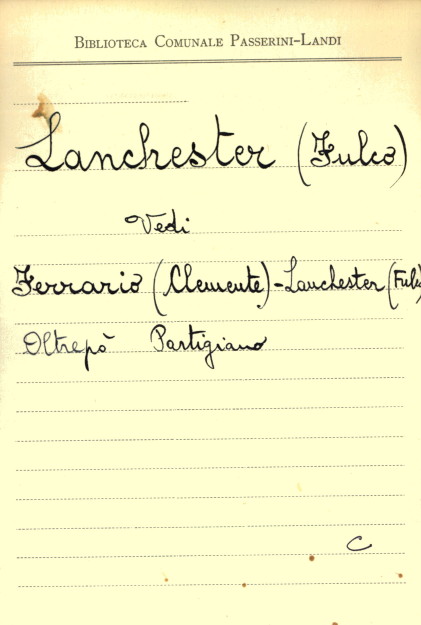 BIBLIOTECA COMUNALE PASSERINI-LANDI
Lanchester (Fulco)
Vedi
Ferrario (Clemente)-Lanchester (Fulco)
Oltrepò Partigiano
C